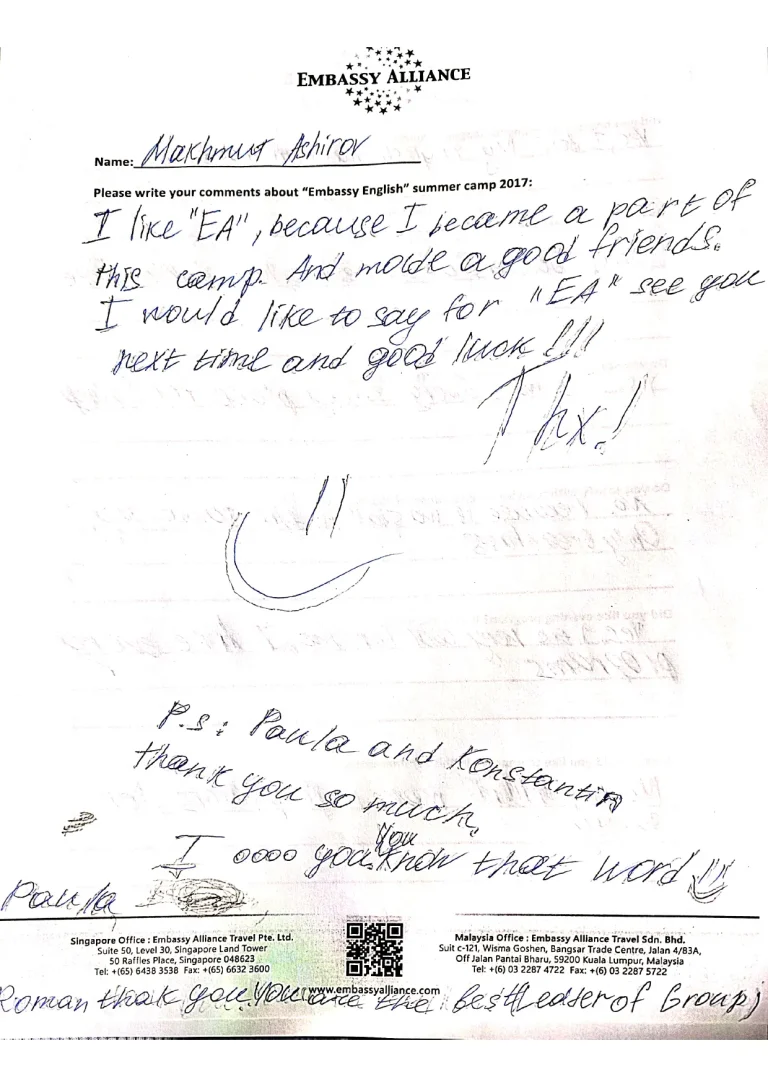 EMBASSY ALLIANCE
Name: Makhmut Ashirov
Please write your comments about “Embassy English” summer camp 2017:
I like "EA", because I became a part of
this camp. And made a good friends.
I would like to say for "EA" see you
next time and good luck !!!
Thx!
P.s: Paula and Konstantin
thank you so much.
You
I oooo you. know that word
Paula
Singapore Office : Embassy Alliance Travel Pte. Ltd.
Suite 50, Level 30, Singapore Land Tower
50 Raffles Place, Singapore 048623
Tel: +(65) 6438 3538 Fax: +(65) 6632 3600
Malaysia Office : Embassy Alliance Travel Sdn. Bhd.
Suit c-121, Wisma Goshen, Bangsar Trade Centre, Jalan 4/83A,
Off Jalan Pantai Bharu, 59200 Kuala Lumpur, Malaysia
Tel: +(6) 03 2287 4722 Fax: +(6) 03 2287 5722
www.embassyalliance.com
Roman thak you. You are the best (Leader of Group)